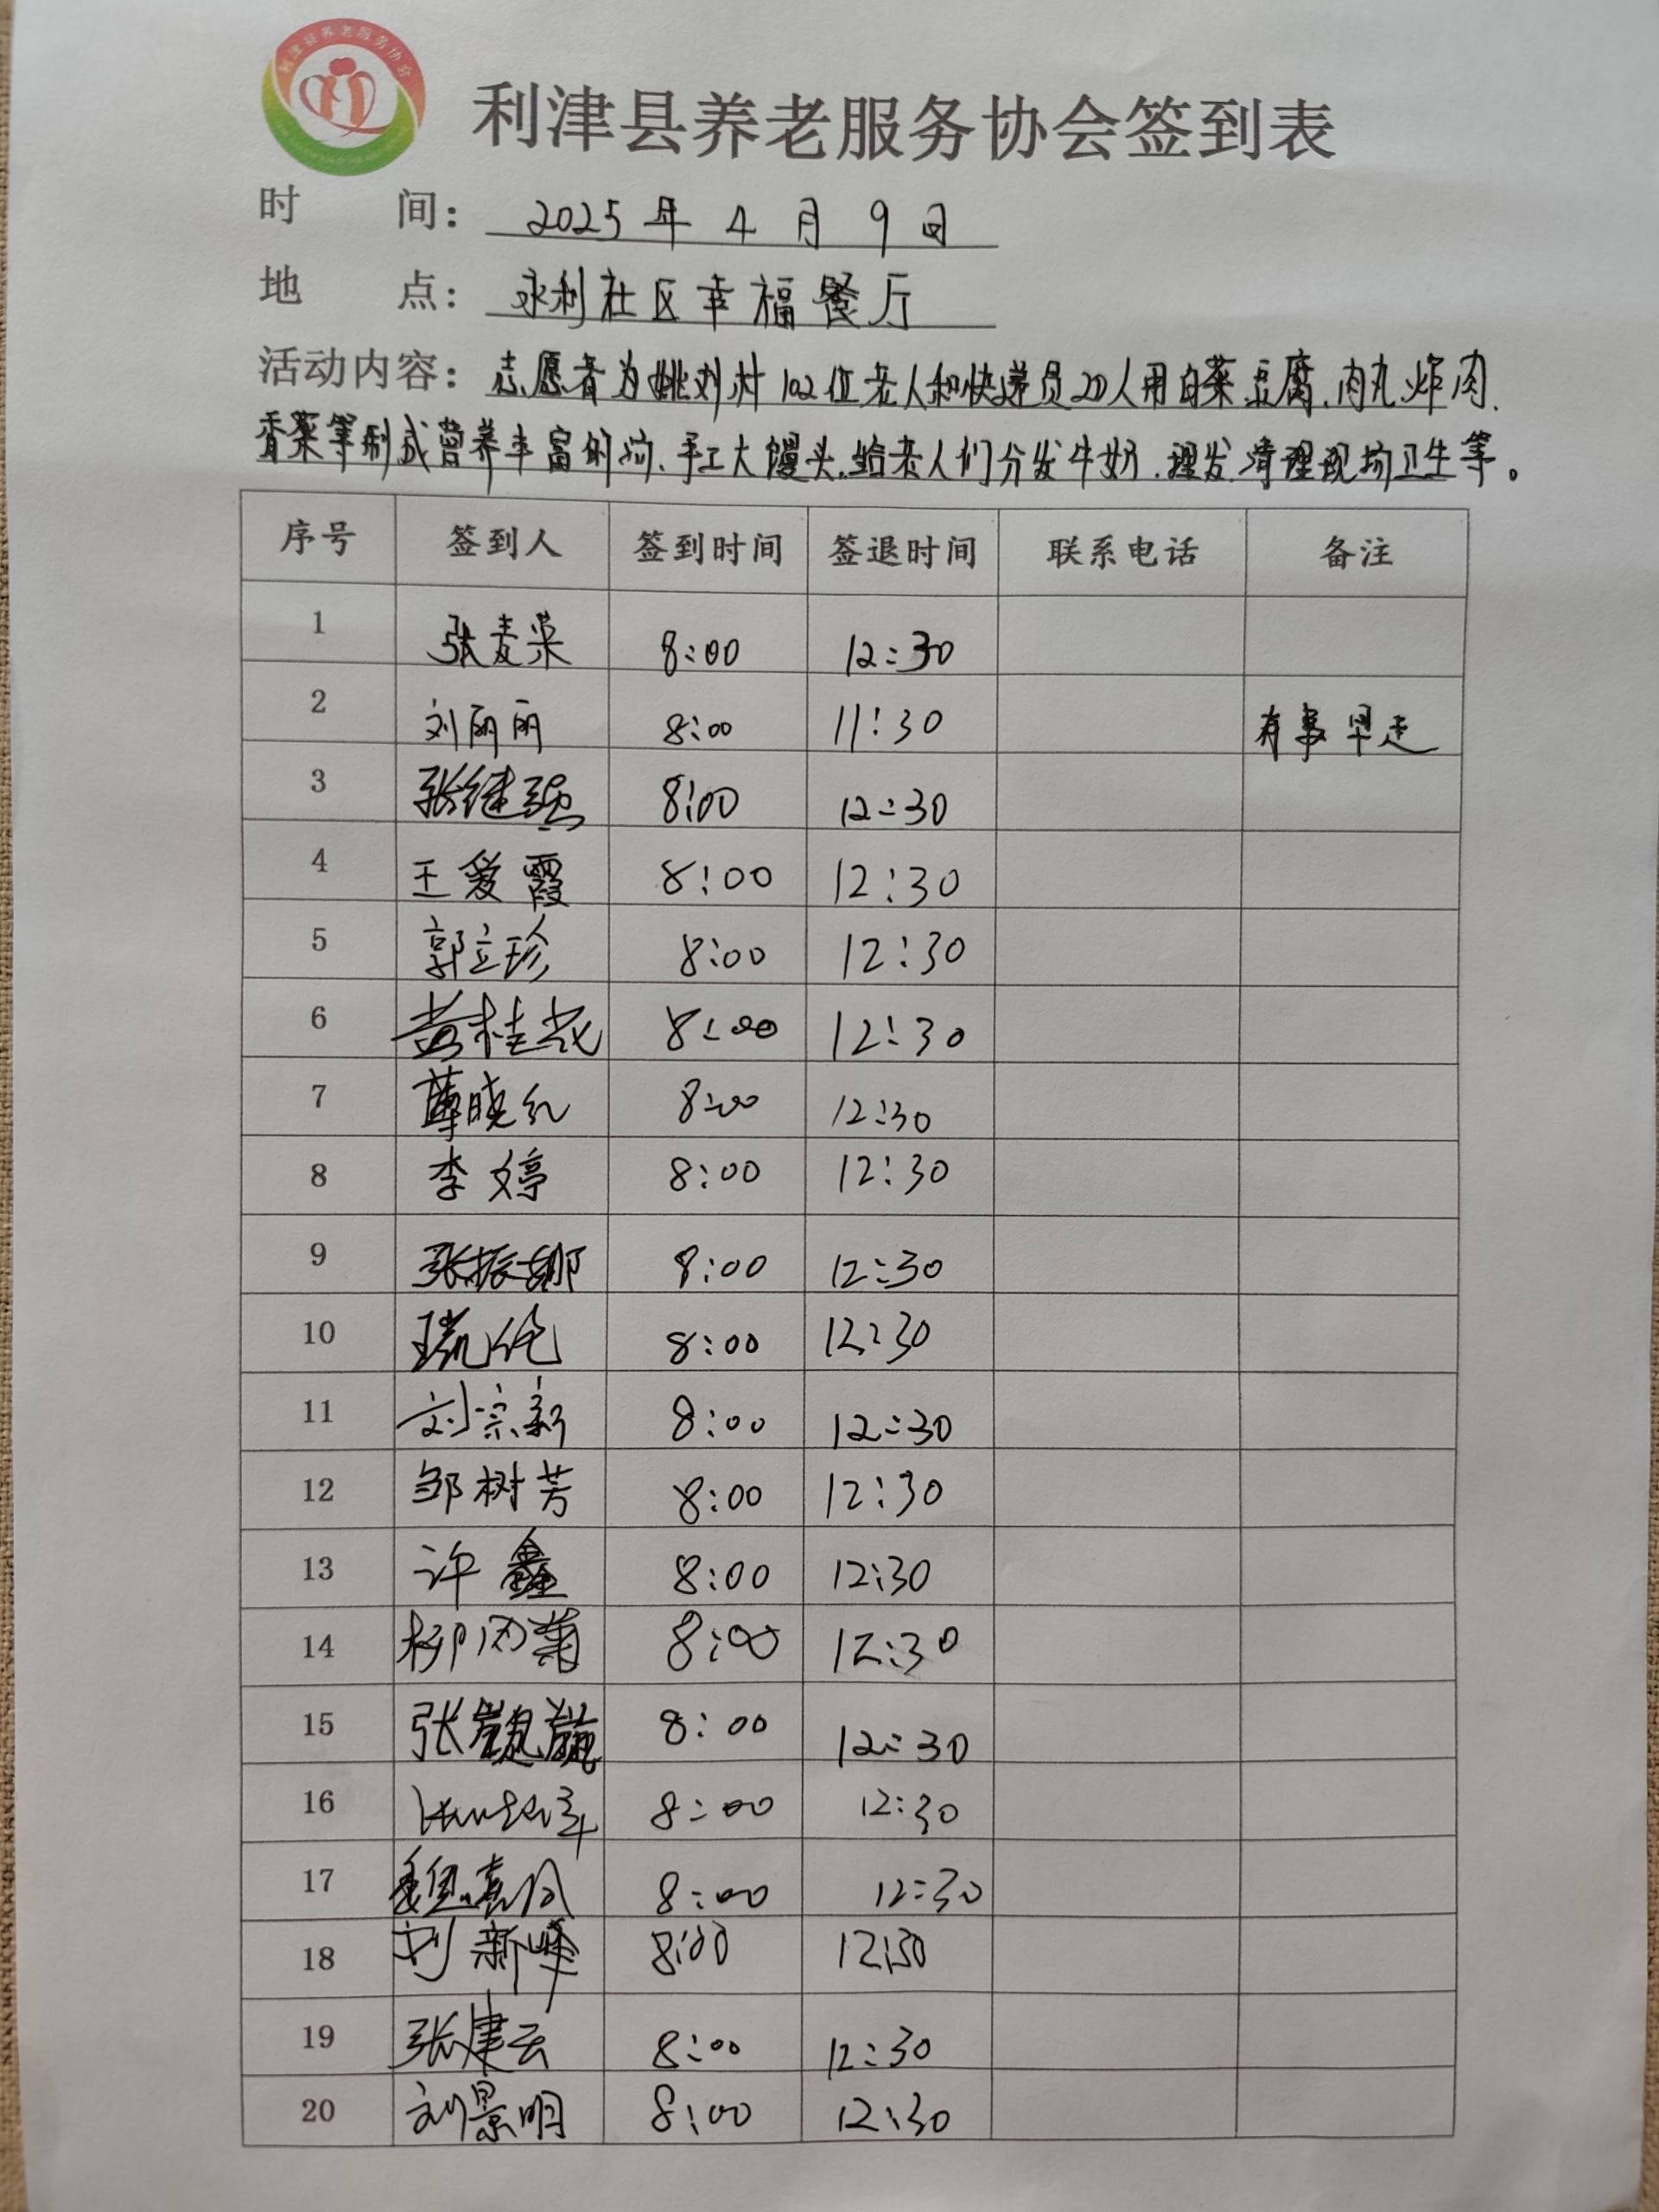 利津县养老服务协会
利津县养老服务协会签到表
时 间： 2025年4月9日
地 点： 永利社区幸福餐厅
活动内容：志愿者为姚刘村102位老人和快递员20人用白菜豆腐、肉丸、炸肉、
香菜等制成营养丰富的 、手工大馒头、给老人们分发牛奶、理发、清理现场卫生等。
序号 签到人 签到时间 签退时间 联系电话 备注
1 张麦荣 8:00 12:30
2 刘丽丽 8:00 11:30 有事早走
3 张继强 8:00 12:30
4 王爱霞 8:00 12:30
5 郭立珍 8:00 12:30
6 黄桂花 8:00 12:30
7 薄晓红 8:00 12:30
8 李婷 8:00 12:30
9 张振娜 8:00 12:30
10 8:00 12:30
11 刘宗新 8:00 12:30
12 邹树芳 8:00 12:30
13 许鑫 8:00 12:30
14 柳丙菊 8:00 12:30
15 张 8:00 12:30
16 8:00 12:30
17 魏 8:00 12:30
18 刘新峰 8:00 12:30
19 张建云 8:00 12:30
20 刘景明 8:00 12:30